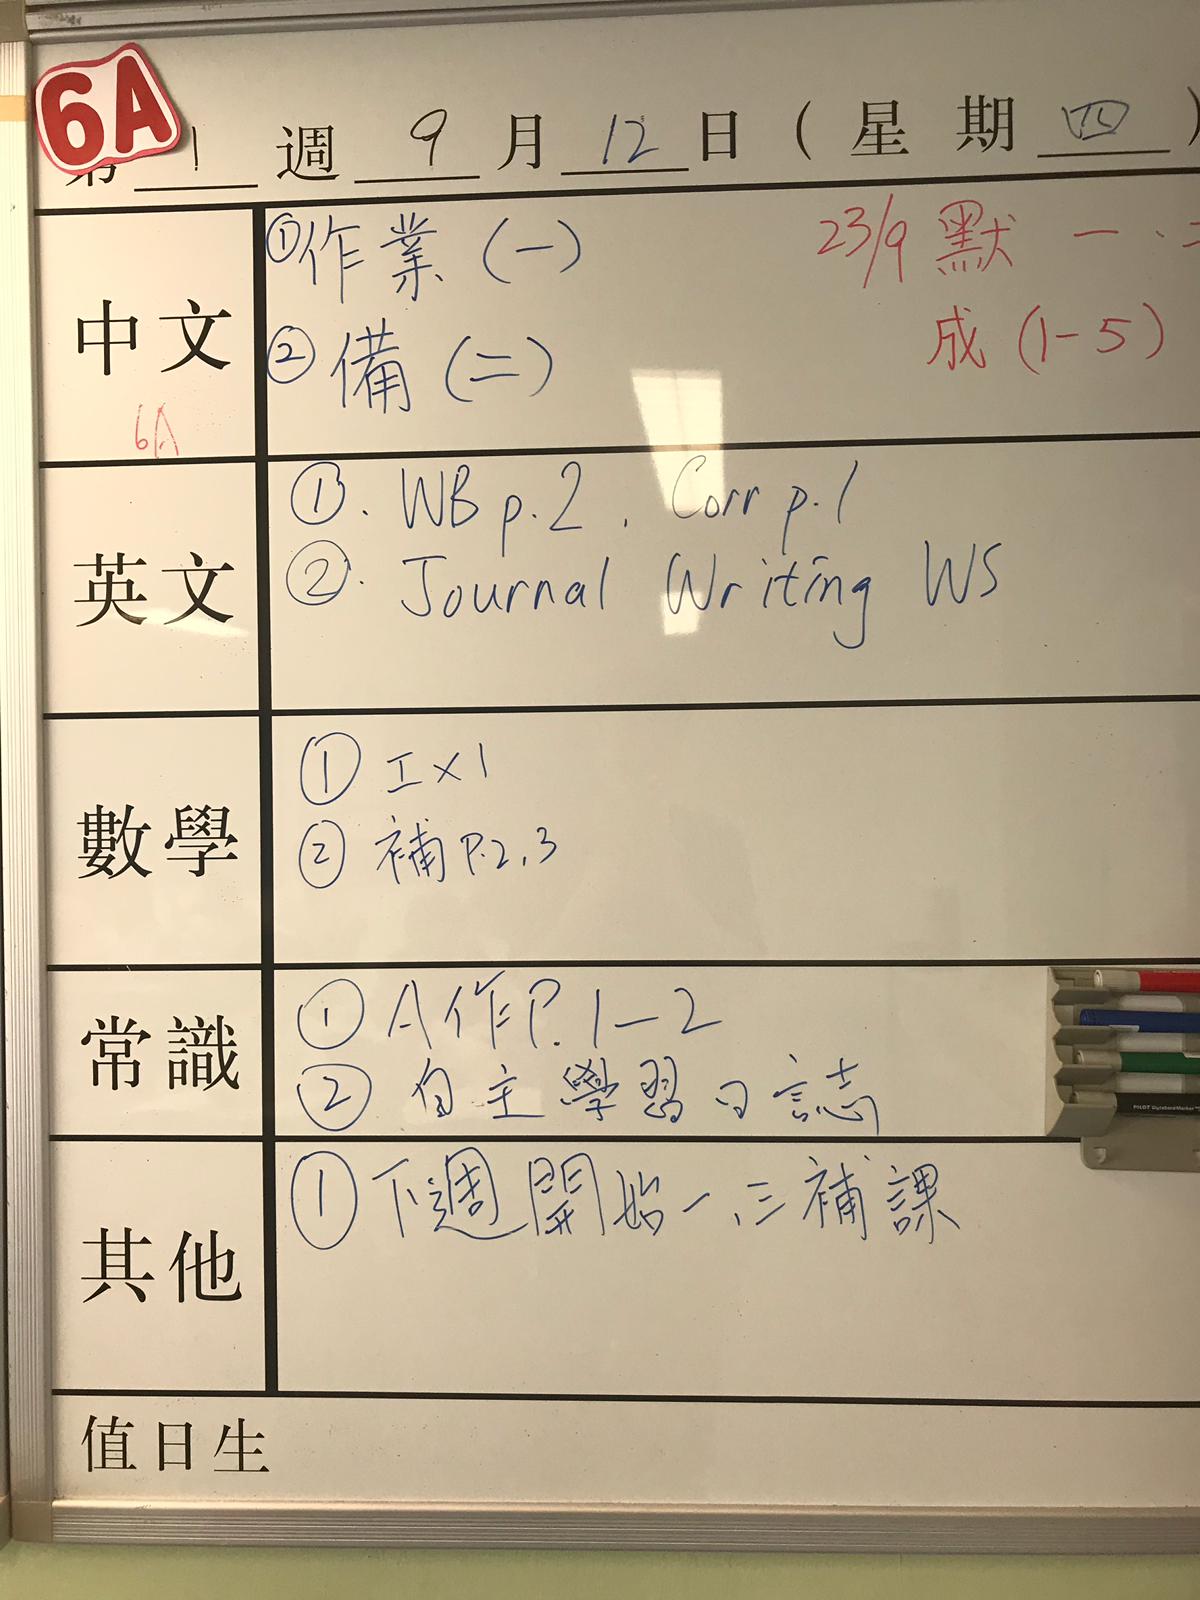 6A
第 1 週 9 月 12 日 ( 星 期 四 )
中文
①作業 (一)
23/9 默 一 . 二
成 (1-5)
② 備 (二)
6A
英文
①. WB p.2 . Corr p.1
②. Journal Writing WS
數學
① 工 x 1
② 補 P.2,3
常識
① A作P.1-2
② 自主學習日誌
PILOT
其他
① 下週開始一、三補課
值日生